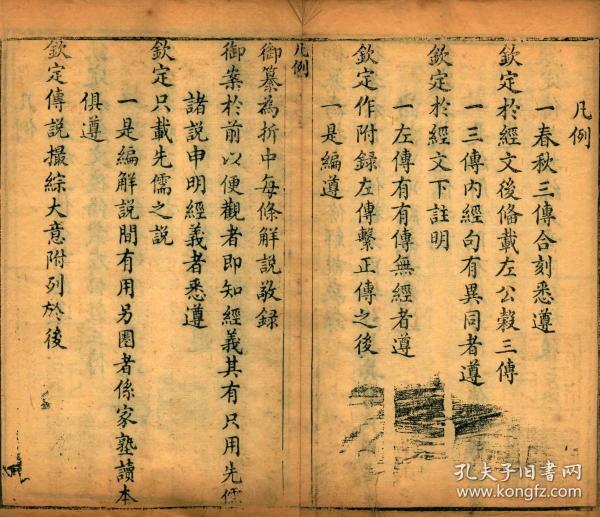 凡例
一春秋三傳合刻悉遵
欽定於經文後俻載左公穀三傳
一三傳內經句有異同者遵
欽定於經文下註明
一左傳有有傳無經者遵
欽定作附録左傳繫正傳之後
一是編遵
凡例
御纂為折中每條解說敬録
御案於前以便觀者即知經義其有只用先儒
諸說申明經義者悉遵
欽定只載先儒之說
一是編解說間有用另圏者係家塾讀本
俱遵
欽定傳說撮綜大意附列於後
孔夫子旧书网
www.kongfz.com